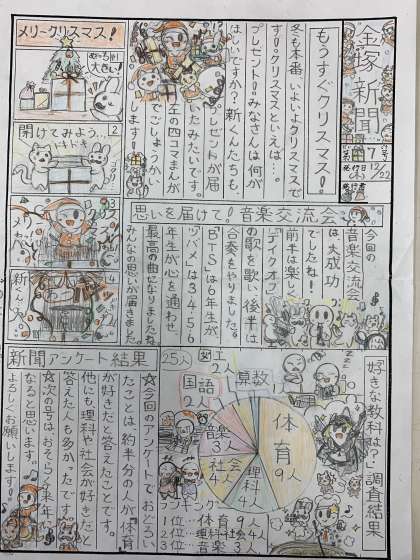 金塚新聞
7
12/22
もうすぐクリスマス!
冬も本番いよいよクリスマスで
す!クリスマスといえば…。
プレゼント!みなさんは何が
ほしいですか?新くんたちも、
プレゼントが届
たみたいです。
左の四コマまんが
でごしょうか
します!
メリークリスマス!
大きい!
2
開けてみよう…
ドキドキ
3
4
思いを届けて!音楽交流会
今回の
音楽交流会
は大成功
でしたね!
前半は楽し
「テイクオフ」
の歌を歌い後半は
合奏もやりました。
「BTS」は6年生が
「ツバメ」は3・4・5・6
年生が心を通わせ
最高の曲になりましたね
みんなの思いが届きました
新聞アンケート結果
「好きな教科は?」調査結果
25人
図工
2人
国語
2人
算数
体育
9人
音楽
3人
社会
4人
理科
4人
ランキング
1位…体育 9人
2位…理科社会 4人
3位…音楽 3人
☆今回のアンケートでおどろい
たことは約半分の人が体育
が好きだと答えたことです。
他にも理科や社会が好きだと
答えた人も多かったです。
☆次の号はおそらく来年に
なると思います。
よろしくお願いします!